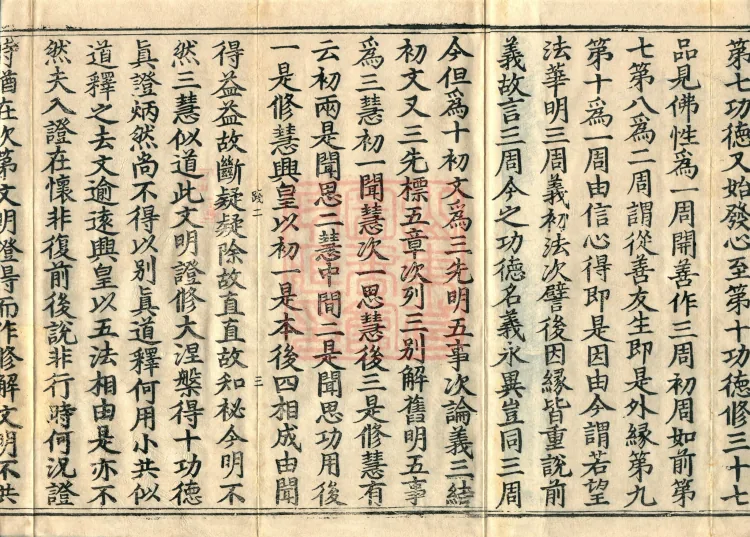 第七功德又始發心至第十功德修三十七
品見佛性爲一周開善作三周初周如前第
七第八爲二周謂從善友生即是外緣第九
第十爲一周由信心得即是因由今謂若望
法華明三周義初法次譬後因緣皆重說前
義故言三周今之功德名義永異豈同三周
今但爲十初文爲三先明五事次論義三結
初文又三先標五章次列三別解舊明五事
爲三慧初一聞慧次一思慧後三是修慧有
云初兩是聞思二慧中間二是聞思功用後
一是修慧興皇以初一是本後四相成由聞
䟦二 三
得益益故斷疑疑除故直直故知秘今明不
然三慧似道此文明證修大涅槃得十功德
眞證炳然尚不得以別眞道釋何用小共似
道釋之去文逾遠興皇以五法相由是亦不
然夫入證在懷非復前後說非行時何況證
時酋在次第文明證得而作修解文明不共